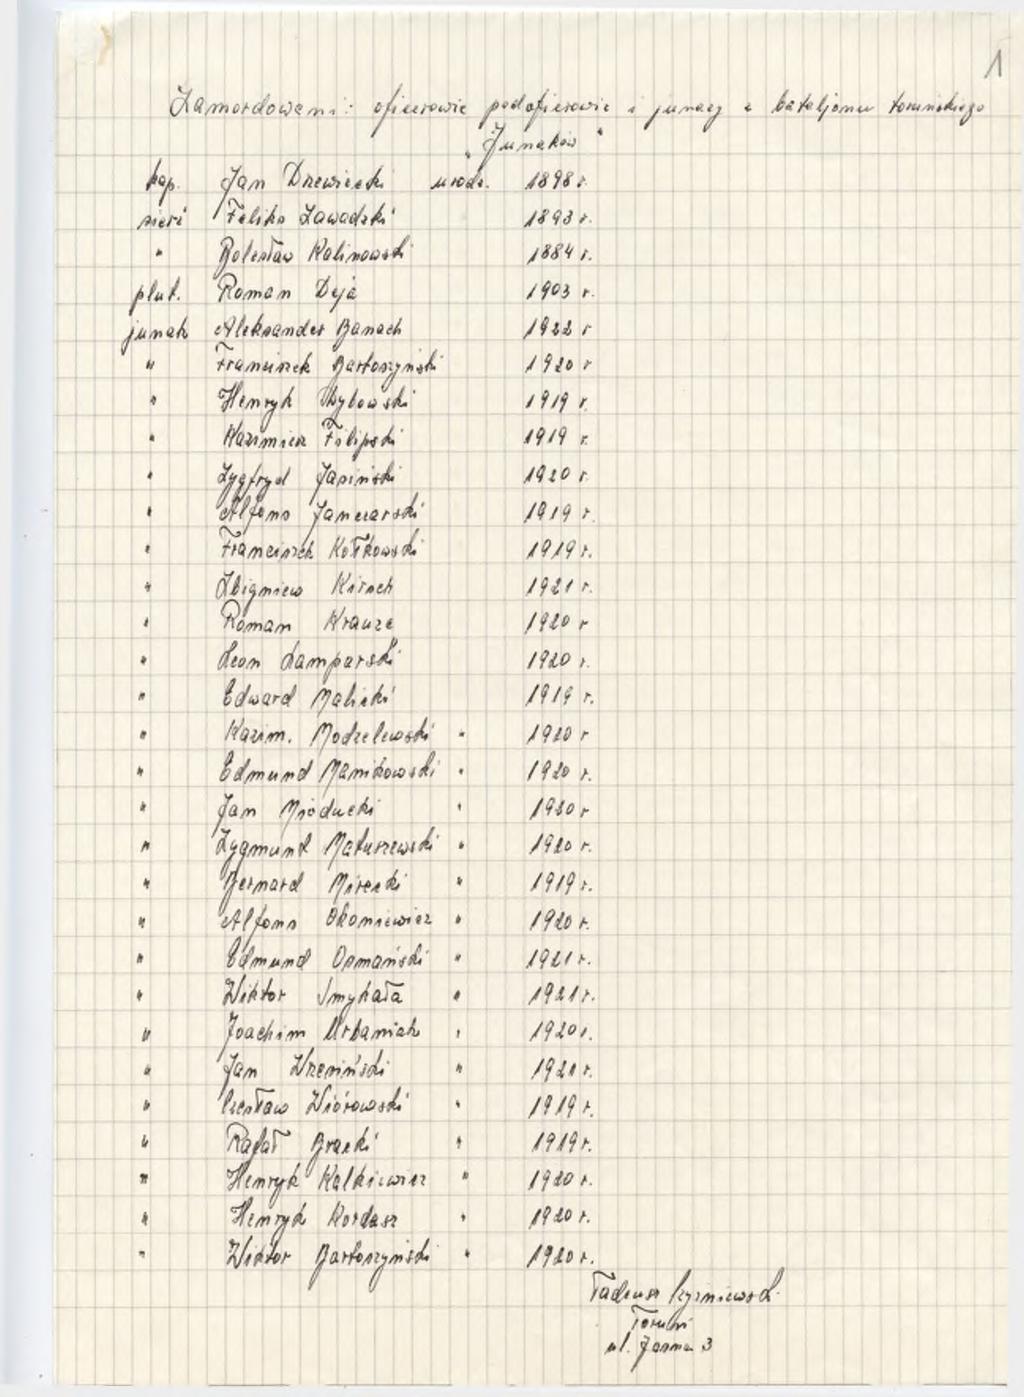 1
Zamordowani: oficerowie podoficerowie i junacy z bataljonu toruńskiego
"Junaków"
kap. Jan Drzewiecki urodz. 1898 r.
sierż Feliks Zawadzki 1893 r.
" Bolesław Kalinowski 1884 r.
plut. Roman Deja 1903 r.
junak Aleksander Banach 1922 r
" Franciszek Bartoszyński 1920 r
" Henryk 1919 r.
" Kazimierz Filipski 1919 r.
" Zygfryd Jasiński 1920 r.
" Alfons Janczarski 1919 r.
" Franciszek Kołkowski 1919 r.
" Zbigniew Kirsch 1921 r.
" Roman Krauze 1920 r
" Leon Lamparski 1920 r.
" Edward Malicki 1919 r.
" Kazim. Modzelewski " 1920 r
" Edmund Manikowski " 1920 r.
" Jan Mioducki " 1920 r
" Zygmunt Matuszewski " 1920 r.
" Bernard Mirecki " 1919 r.
" Alfons Okoniewicz " 1920 r.
" Edmund Osmański " 1921 r.
" Wiktor Smykała " 1921 r.
" Joachim Urbaniak " 1920 r.
" Jan Wrzesiński " 1921 r.
" Czesław Wiórowski " 1919 r.
" Rafał Bracki " 1919 r.
" Henryk Kalkiewicz " 1920 r.
" Henryk Kordasz " 1920 r.
" Wiktor Bartoszyński " 1920 r.
Tadeusz
Toruń
ul. Jasna 3